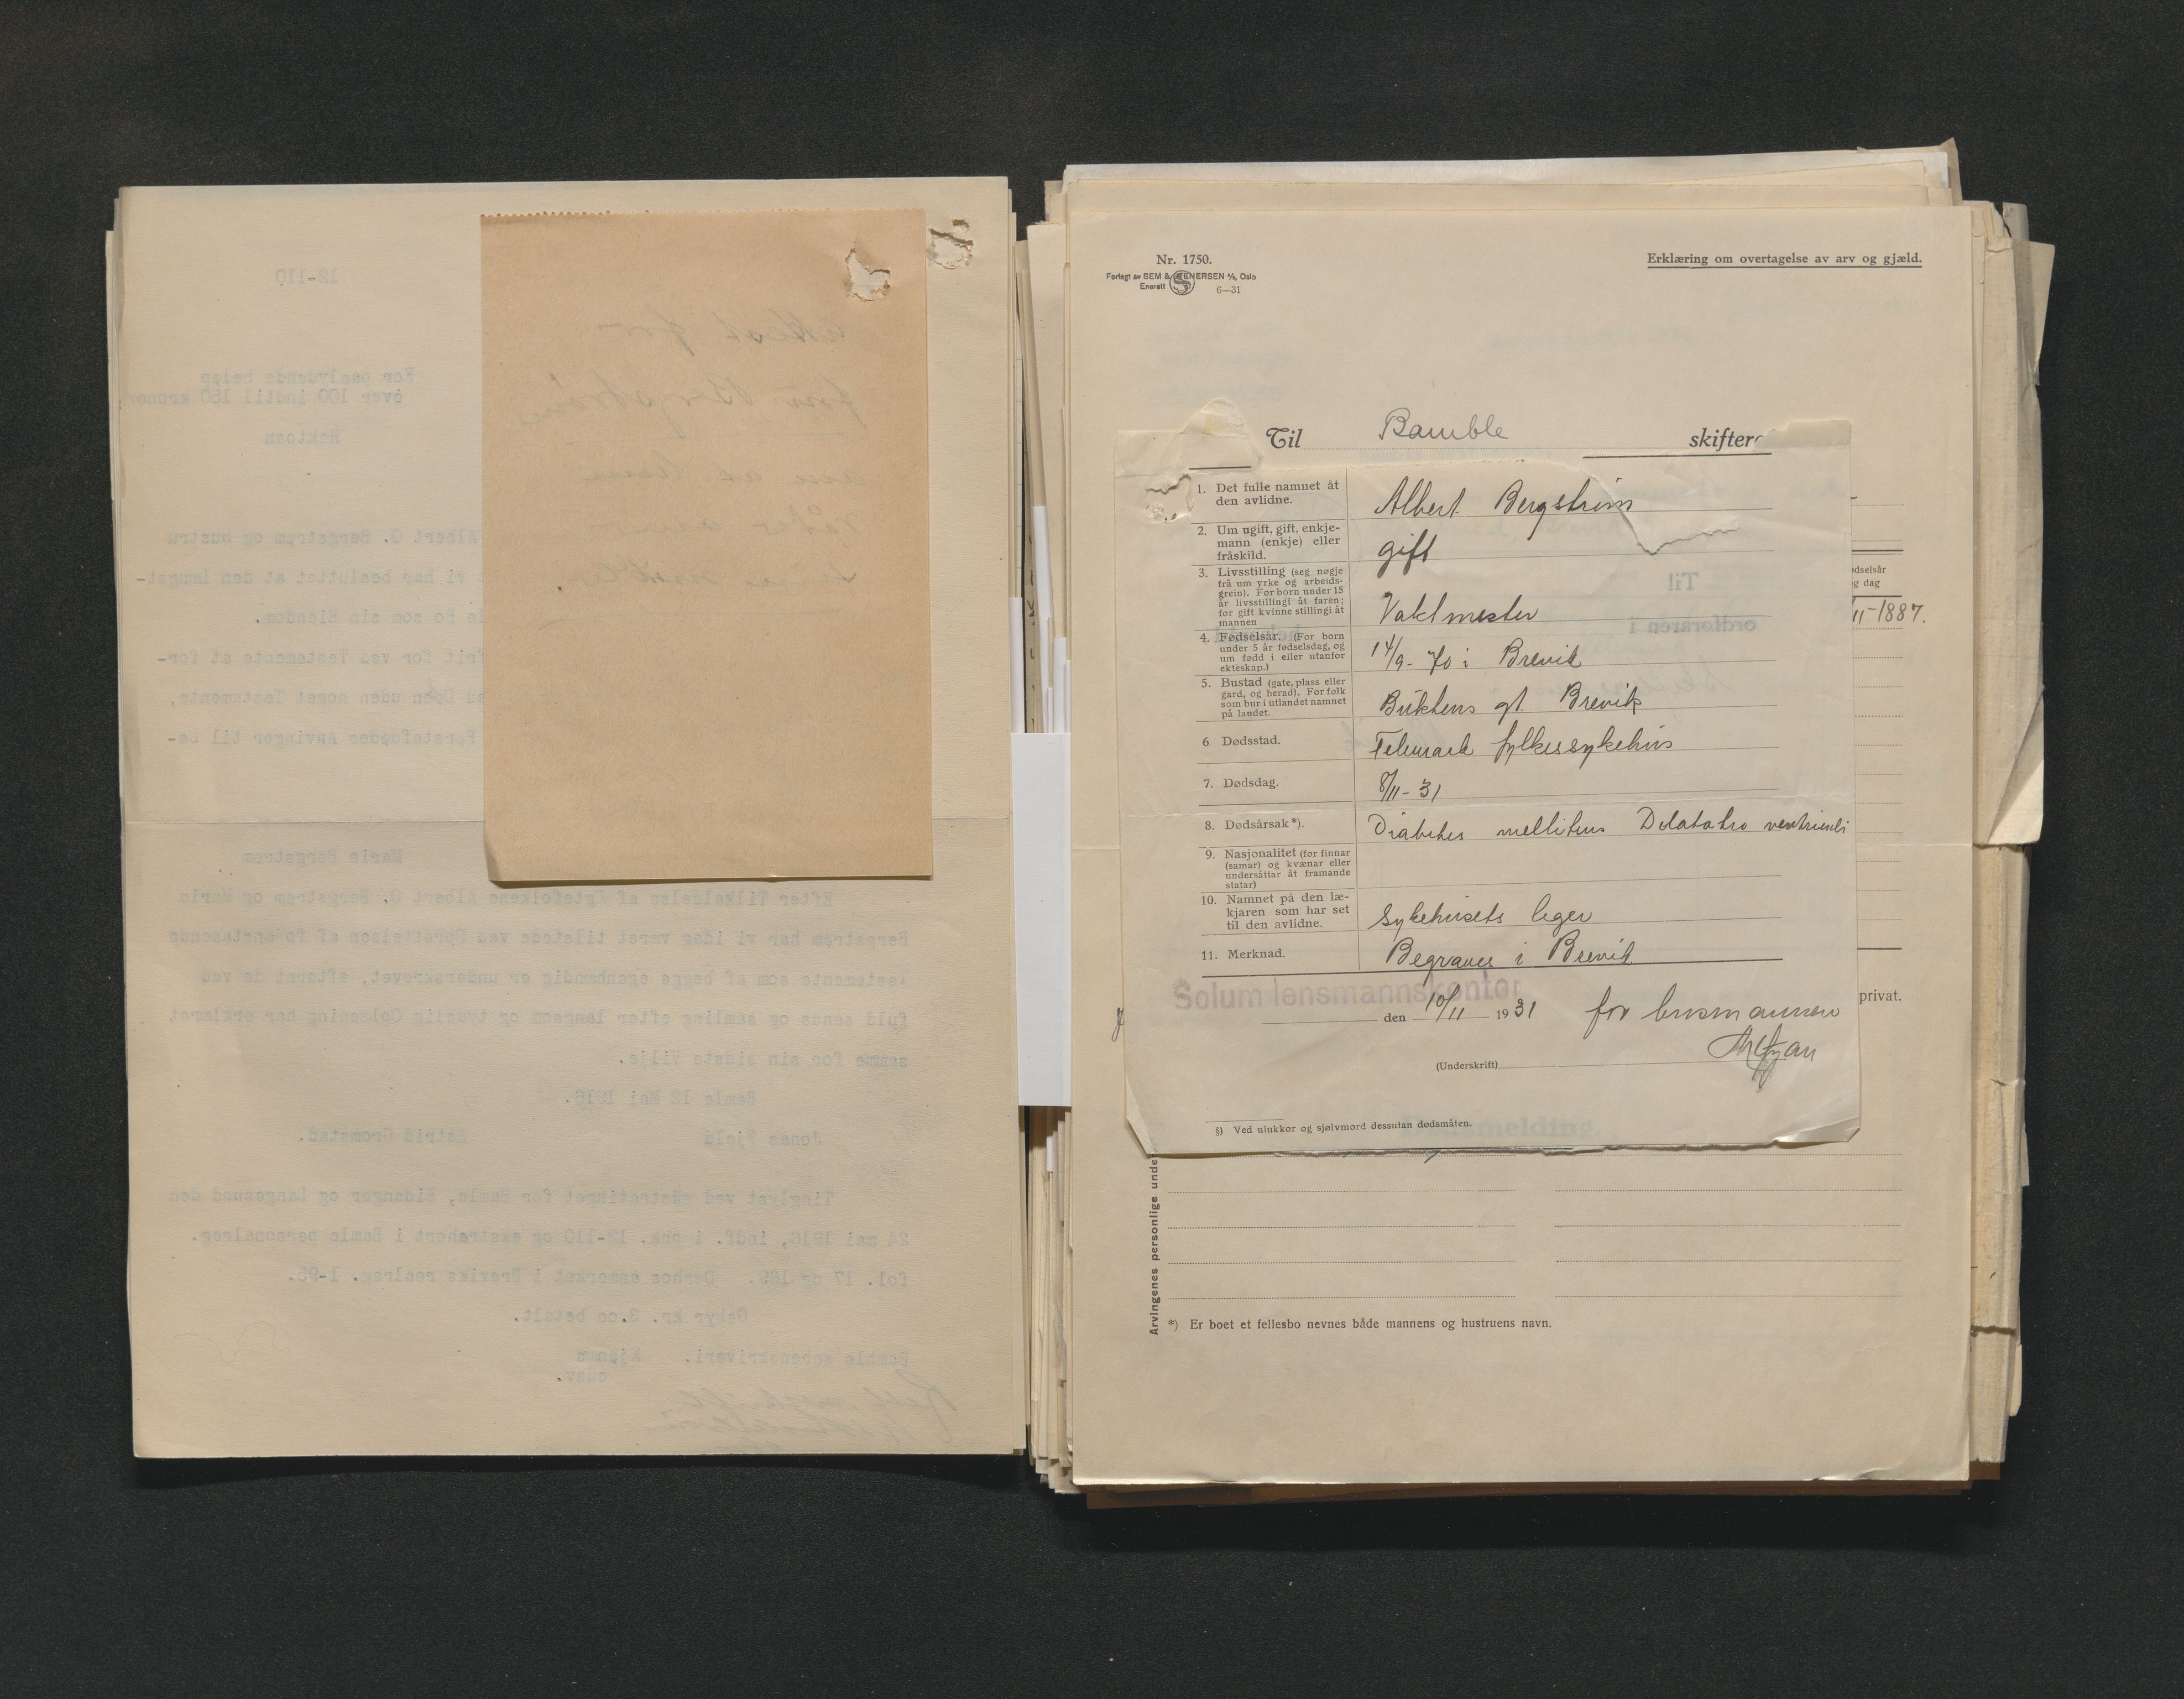 12-110
For paalydende beløp
over 100 indtil 150 kroner
Albert O. Bergstrøm og Hustru
vi har besluttet at den længst-
Bo som sin Eiendom.
frit for ved Testamente at for-
uden noget Testamente,
Førstafdødes Arvinger til De-
Marie Bergstrøm
Efter Tilkaldelse af Ægtefolkene Albert O. Bergstrøm og Marie
Bergstrøm har vi idag været tilstede ved Oprettelsen af foranstaaende
Testamente som af begge egenhændig er underskrevet, efterat de ved
fuld sands og samling efter langsom og tydelig Oplæsning har erklæret
samme for sin sidste Vilje.
Bamle 12 Mai 1916.
Jonas Fjeld Astrid Gromstad.
Tinglæst ved ekstratinget for Bamle, Eidanger og Langesund den
24 mai 1916, indf. i pbk. 12-110 og ekstrahert i Bamle personalreg.
fol. 17 og 169. Derhos anmerket i Breviks realreg. 1-95.
Gebyr kr. 3.00 betalt.
Bamble sorenskriveri.
Nr. 1750.
Forlagt av SEM & STENERSEN A/S, Oslo
Enerett 6—31
Erklæring om overtagelse av arv og gjæld.
Til Bamble skiftere
1. Det fulle namnet åt
den avlidne.
Albert Bergstrøm
2. Um ugift, gift, enkje-
mann (enkje) eller
fråskild.
gift
3. Livsstilling (seg nøgje
frå um yrke og arbeids-
grein). For born under 15
år livsstillingi åt faren;
for gift kvinne stillingi åt
mannen
Vaktmester
4. Fødselsår. (For born
under 5 år fødselsdag, og
um fødd i eller utanfor
ekteskap.)
14/9-70 i Brevik
5. Bustad (gate, plass eller
gard, og herad). For folk
som bur i utlandet namnet
på landet.
Buktens gt. Brevik
6 Dødsstad.
Telemark fylkessykehus
7. Dødsdag.
8/11-31
8. Dødsårsak*).
Diabetes mellitus Dilatatio ventriculi
9. Nasjonalitet (for finnar
(samar) og kvænar eller
undersåttar åt framande
statar)
10. Namnet på den læ-
kjaren som har set
til den avlidne.
Sykehusets leger
11. Merknad.
Begraves i Brevik
Solum lensmannskontor
den 10/11 1931 for lensmannen
(Underskrift)
§) Ved ulukkor og sjølvmord dessutan dødsmåten.
Til
ordføraren i
Dødsmelding.
ødselsår
g dag
11-1887.
privat.
Arvingenes personlige unde
*) Er boet et fellesbo nevnes både mannens og hustruens navn.